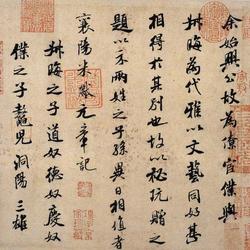 余始興公故為僚宦僕與
叔晦為代雅以文藝同好甚
相得於其別也故以秘玩贈之
題以示兩姓之子孫異日相值者
襄陽米黻元章記
叔晦之子道奴德奴慶奴
僕之子鼇兒洞陽三雄